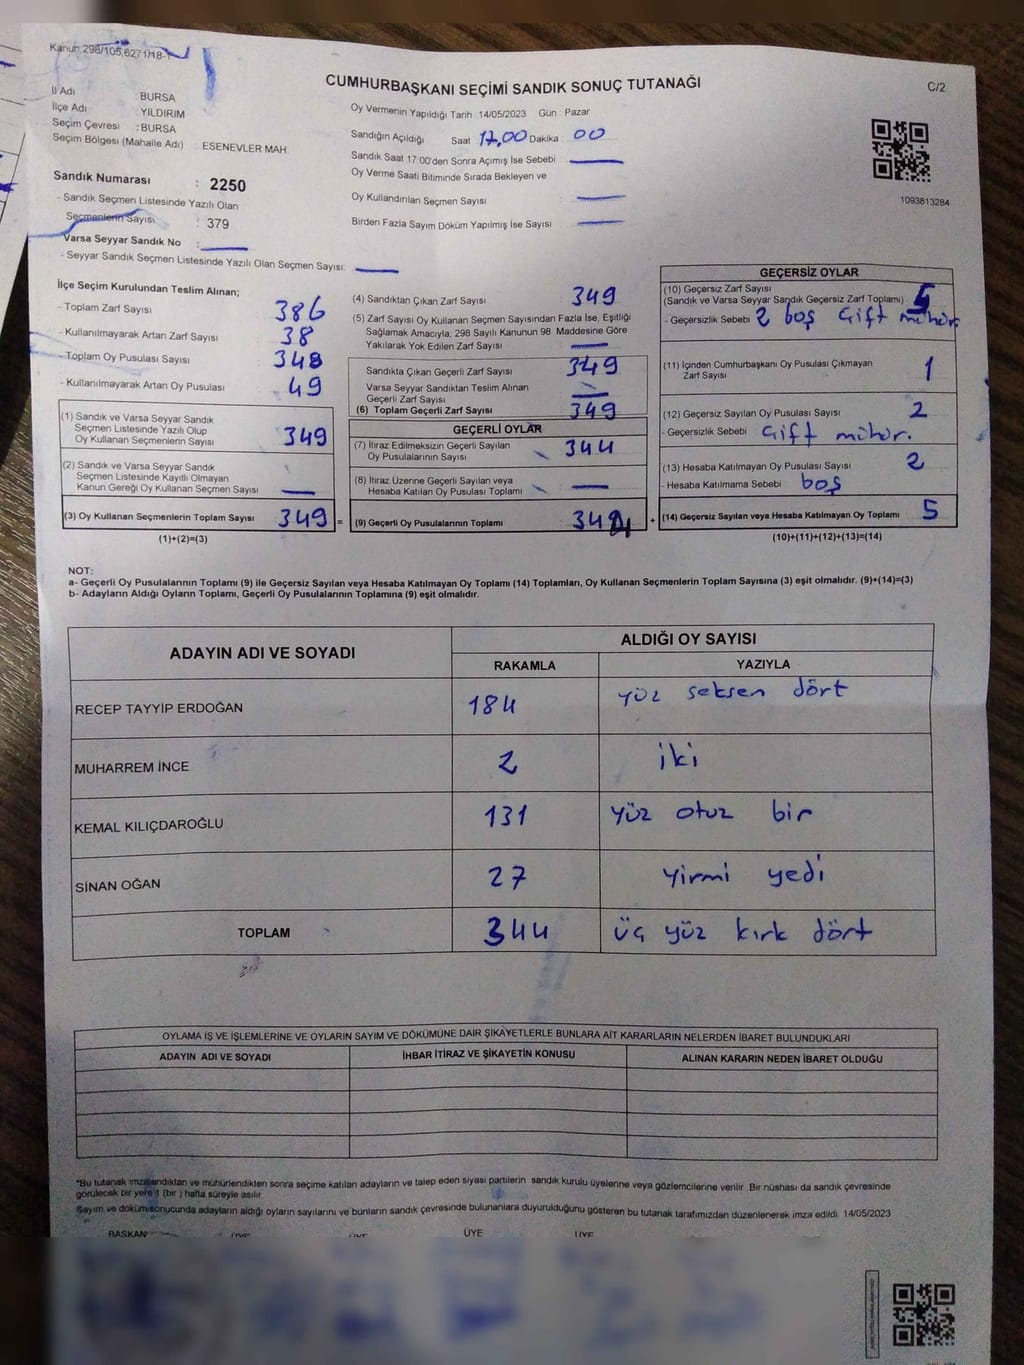 Kanun:298/105,6271/18-1
CUMHURBAŞKANI SEÇİMİ SANDIK SONUÇ TUTANAĞI
C/2
İl Adı : BURSA
İlçe Adı : YILDIRIM
Seçim Çevresi : BURSA
Seçim Bölgesi (Mahalle Adı) : ESENEVLER MAH.
Oy Vermenin Yapıldığı Tarih :14/05/2023 Gün : Pazar
Sandığın Açıldığı Saat 17,00 Dakika 00
Sandık Saat 17:00'den Sonra Açımış İse Sebebi
Oy Verme Saati Bitiminde Sırada Bekleyen ve
Oy Kullandırılan Seçmen Sayısı
Birden Fazla Sayım Döküm Yapılmış İse Sayısı
1093813284
Sandık Numarası : 2250
- Sandık Seçmen Listesinde Yazılı Olan
Seçmenlerin Sayısı : 379
Varsa Seyyar Sandık No :
- Seyyar Sandık Seçmen Listesinde Yazılı Olan Seçmen Sayısı:
İlçe Seçim Kurulundan Teslim Alınan;
- Toplam Zarf Sayısı 386
- Kullanılmayarak Artan Zarf Sayısı 38
- Toplam Oy Pusulası Sayısı 348
- Kullanılmayarak Artan Oy Pusulası 49
(1) Sandık ve Varsa Seyyar Sandık
Seçmen Listesinde Yazılı Olup
Oy Kullanan Seçmenlerin Sayısı 349
(2) Sandık ve Varsa Seyyar Sandık
Seçmen Listesinde Kayıtlı Olmayan
Kanun Gereği Oy Kullanan Seçmen Sayısı
(3) Oy Kullanan Seçmenlerin Toplam Sayısı 349 =
(1)+(2)=(3)
(4) Sandıktan Çıkan Zarf Sayısı 349
(5) Zarf Sayısı Oy Kullanan Seçmen Sayısından Fazla İse, Eşitliği
Sağlamak Amacıyla, 298 Sayılı Kanunun 98 Maddesine Göre
Yakılarak Yok Edilen Zarf Sayısı
Sandıkta Çıkan Geçerli Zarf Sayısı 349
Varsa Seyyar Sandıktan Teslim Alınan
Geçerli Zarf Sayısı
(6) Toplam Geçerli Zarf Sayısı 349
GEÇERLİ OYLAR
(7) İtiraz Edilmeksizin Geçerli Sayılan
Oy Pusulalarının Sayısı 344
(8) İtiraz Üzerine Geçerli Sayılan veya
Hesaba Katılan Oy Pusulası Toplamı
(9) Geçerli Oy Pusulalarının Toplamı 344 +
GEÇERSİZ OYLAR
(10) Geçersiz Zarf Sayısı
(Sandık ve Varsa Seyyar Sandık Geçersiz Zarf Toplamı)
- Geçersizlik Sebebi 2 boş Çift mühür.
(11) İçinden Cumhurbaşkanı Oy Pusulası Çıkmayan
Zarf Sayısı 1
(12) Geçersiz Sayılan Oy Pusulası Sayısı 2
- Geçersizlik Sebebi Çift mühür.
(13) Hesaba Katılmayan Oy Pusulası Sayısı 2
- Hesaba Katılmama Sebebi boş
(14) Geçersiz Sayılan veya Hesaba Katılmayan Oy Toplamı : 5
(10)+(11)+(12)+(13)=(14)
NOT:
a- Geçerli Oy Pusulalarının Toplamı (9) ile Geçersiz Sayılan veya Hesaba Katılmayan Oy Toplamı (14) Toplamları, Oy Kullanan Seçmenlerin Toplam Sayısına (3) eşit olmalıdır. (9)+(14)=(3)
b- Adayların Aldığı Oyların Toplamı, Geçerli Oy Pusulalarının Toplamına (9) eşit olmalıdır.
ADAYIN ADI VE SOYADI ALDIĞI OY SAYISI
RAKAMLA YAZIYLA
RECEP TAYYİP ERDOĞAN 184 yüz seksen dört
MUHARREM İNCE 2 iki
KEMAL KILIÇDAROĞLU 131 yüz otuz bir
SİNAN OĞAN 27 yirmi yedi
TOPLAM 344 üç yüz kırk dört
OYLAMA İŞ VE İŞLEMLERİNE VE OYLARIN SAYIM VE DÖKÜMÜNE DAİR ŞİKAYETLERLE BUNLARA AİT KARARLARIN NELERDEN İBARET BULUNDUKLARI
ADAYIN ADI VE SOYADI İHBAR İTİRAZ VE ŞİKAYETİN KONUSU ALINAN KARARIN NEDEN İBARET OLDUĞU
*Bu tutanak imzalandıktan ve mühürlendikten sonra seçime katılan adayların ve talep eden siyasi partilerin sandık kurulu üyelerine veya gözlemcilerine verilir. Bir nüshası da sandık çevresinde
görülecek bir yere 1 (bir ) hafta süreyle asılır.
Sayım ve döküm sonucunda adayların aldığı oyların sayılarını ve bunların sandık çevresinde bulunanlara duyurulduğunu gösteren bu tutanak tarafımızdan düzenlenerek imza edildi. 14/05/2023
BAŞKAN ÜYE ÜYE ÜYE